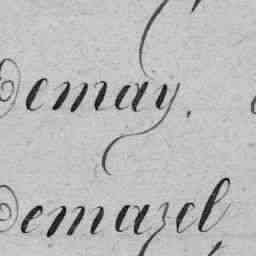 Demay.
Demazel